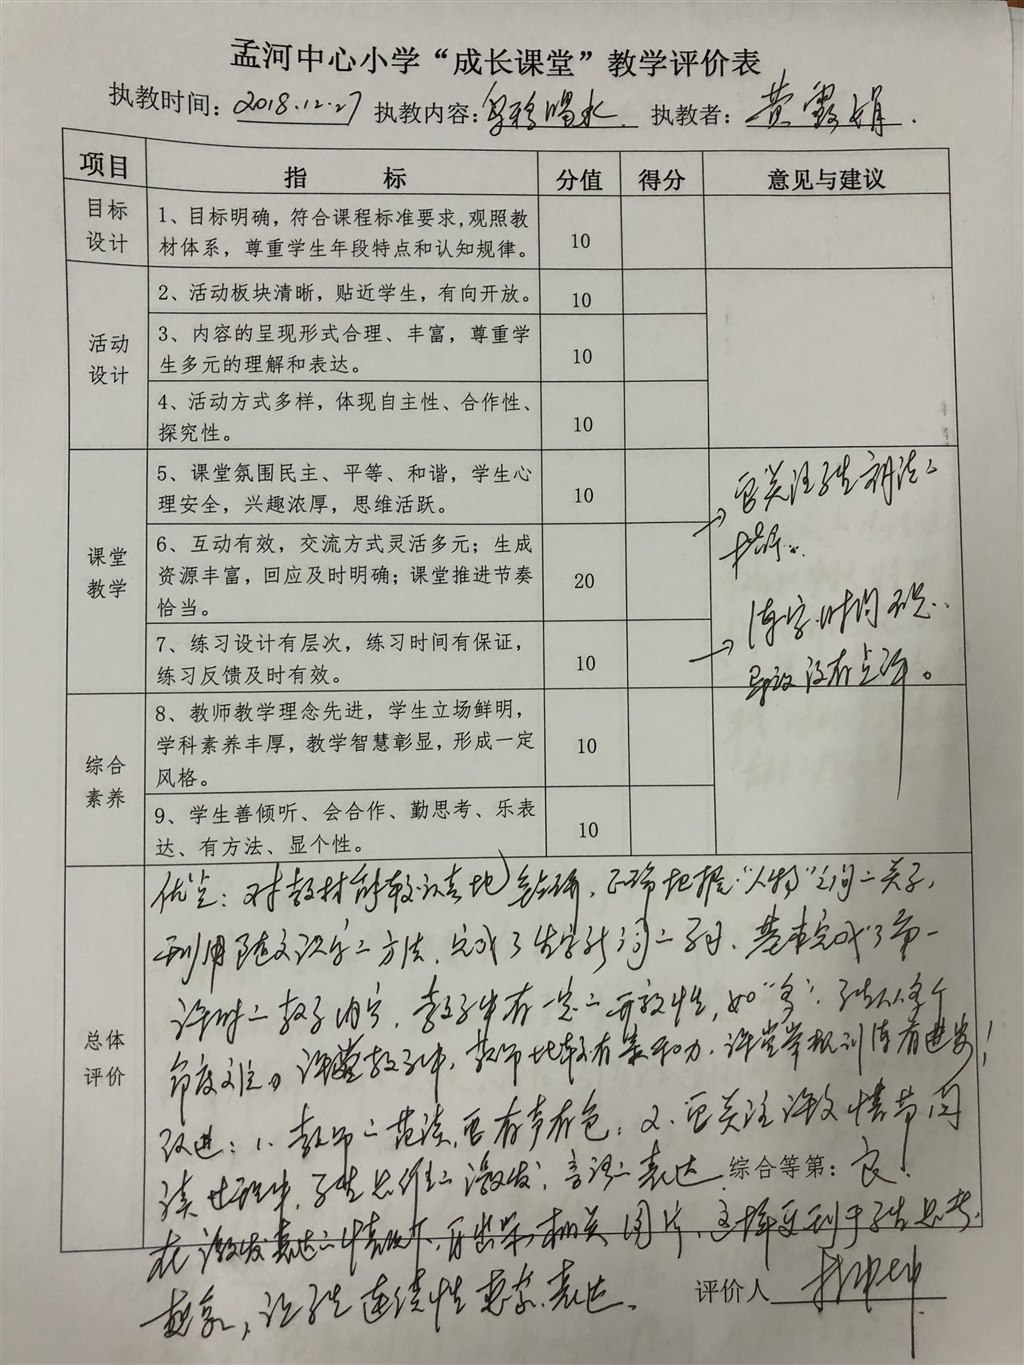 孟河中心小学“成长课堂”教学评价表
执教时间：2018.12.27 执教内容：乌鸦喝水 执教者：黄霞娟
项目 指 标 分值 得分 意见与建议
目标
设计
1、目标明确，符合课程标准要求，观照教
材体系，尊重学生年段特点和认知规律。
10
活动
设计
2、活动板块清晰，贴近学生，有向开放。
10
3、内容的呈现形式合理、丰富，尊重学
生多元的理解和表达。
10
4、活动方式多样，体现自主性、合作性、
探究性。
10
课堂
教学
5、课堂氛围民主、平等、和谐，学生心
理安全，兴趣浓厚，思维活跃。
10
6、互动有效，交流方式灵活多元；生成
资源丰富，回应及时明确；课堂推进节奏
恰当。
20
7、练习设计有层次，练习时间有保证，
练习反馈及时有效。
10
→要关注学生
→写字时间不足
导致没有点评。
综合
素养
8、教师教学理念先进，学生立场鲜明，
学科素养丰厚，教学智慧彰显，形成一定
风格。
10
9、学生善倾听、会合作、勤思考、乐表
达、有方法、显个性。
10
总体
评价
优点：对教材能较认真地钻研，正确地把握“人物”之间的关系，
利用随文识字的方法，完成了生字新词的学习，基本完成了第一
课时的教学内容，教学中有一定的开放性，如“多”，学生从多个
角度交流。课堂教学中，教师比较有亲和力，课堂常规训练有进步！
改进：1、教师的范读，要有声有色；2、要关注课文情节阅
读过程中，学生思维的激发，言语的表达。综合等第：良！
在激发表达的情况下，再出示相关图片，这样更利于学生思考、
想象，让学生连续性思考、表达。
评价人